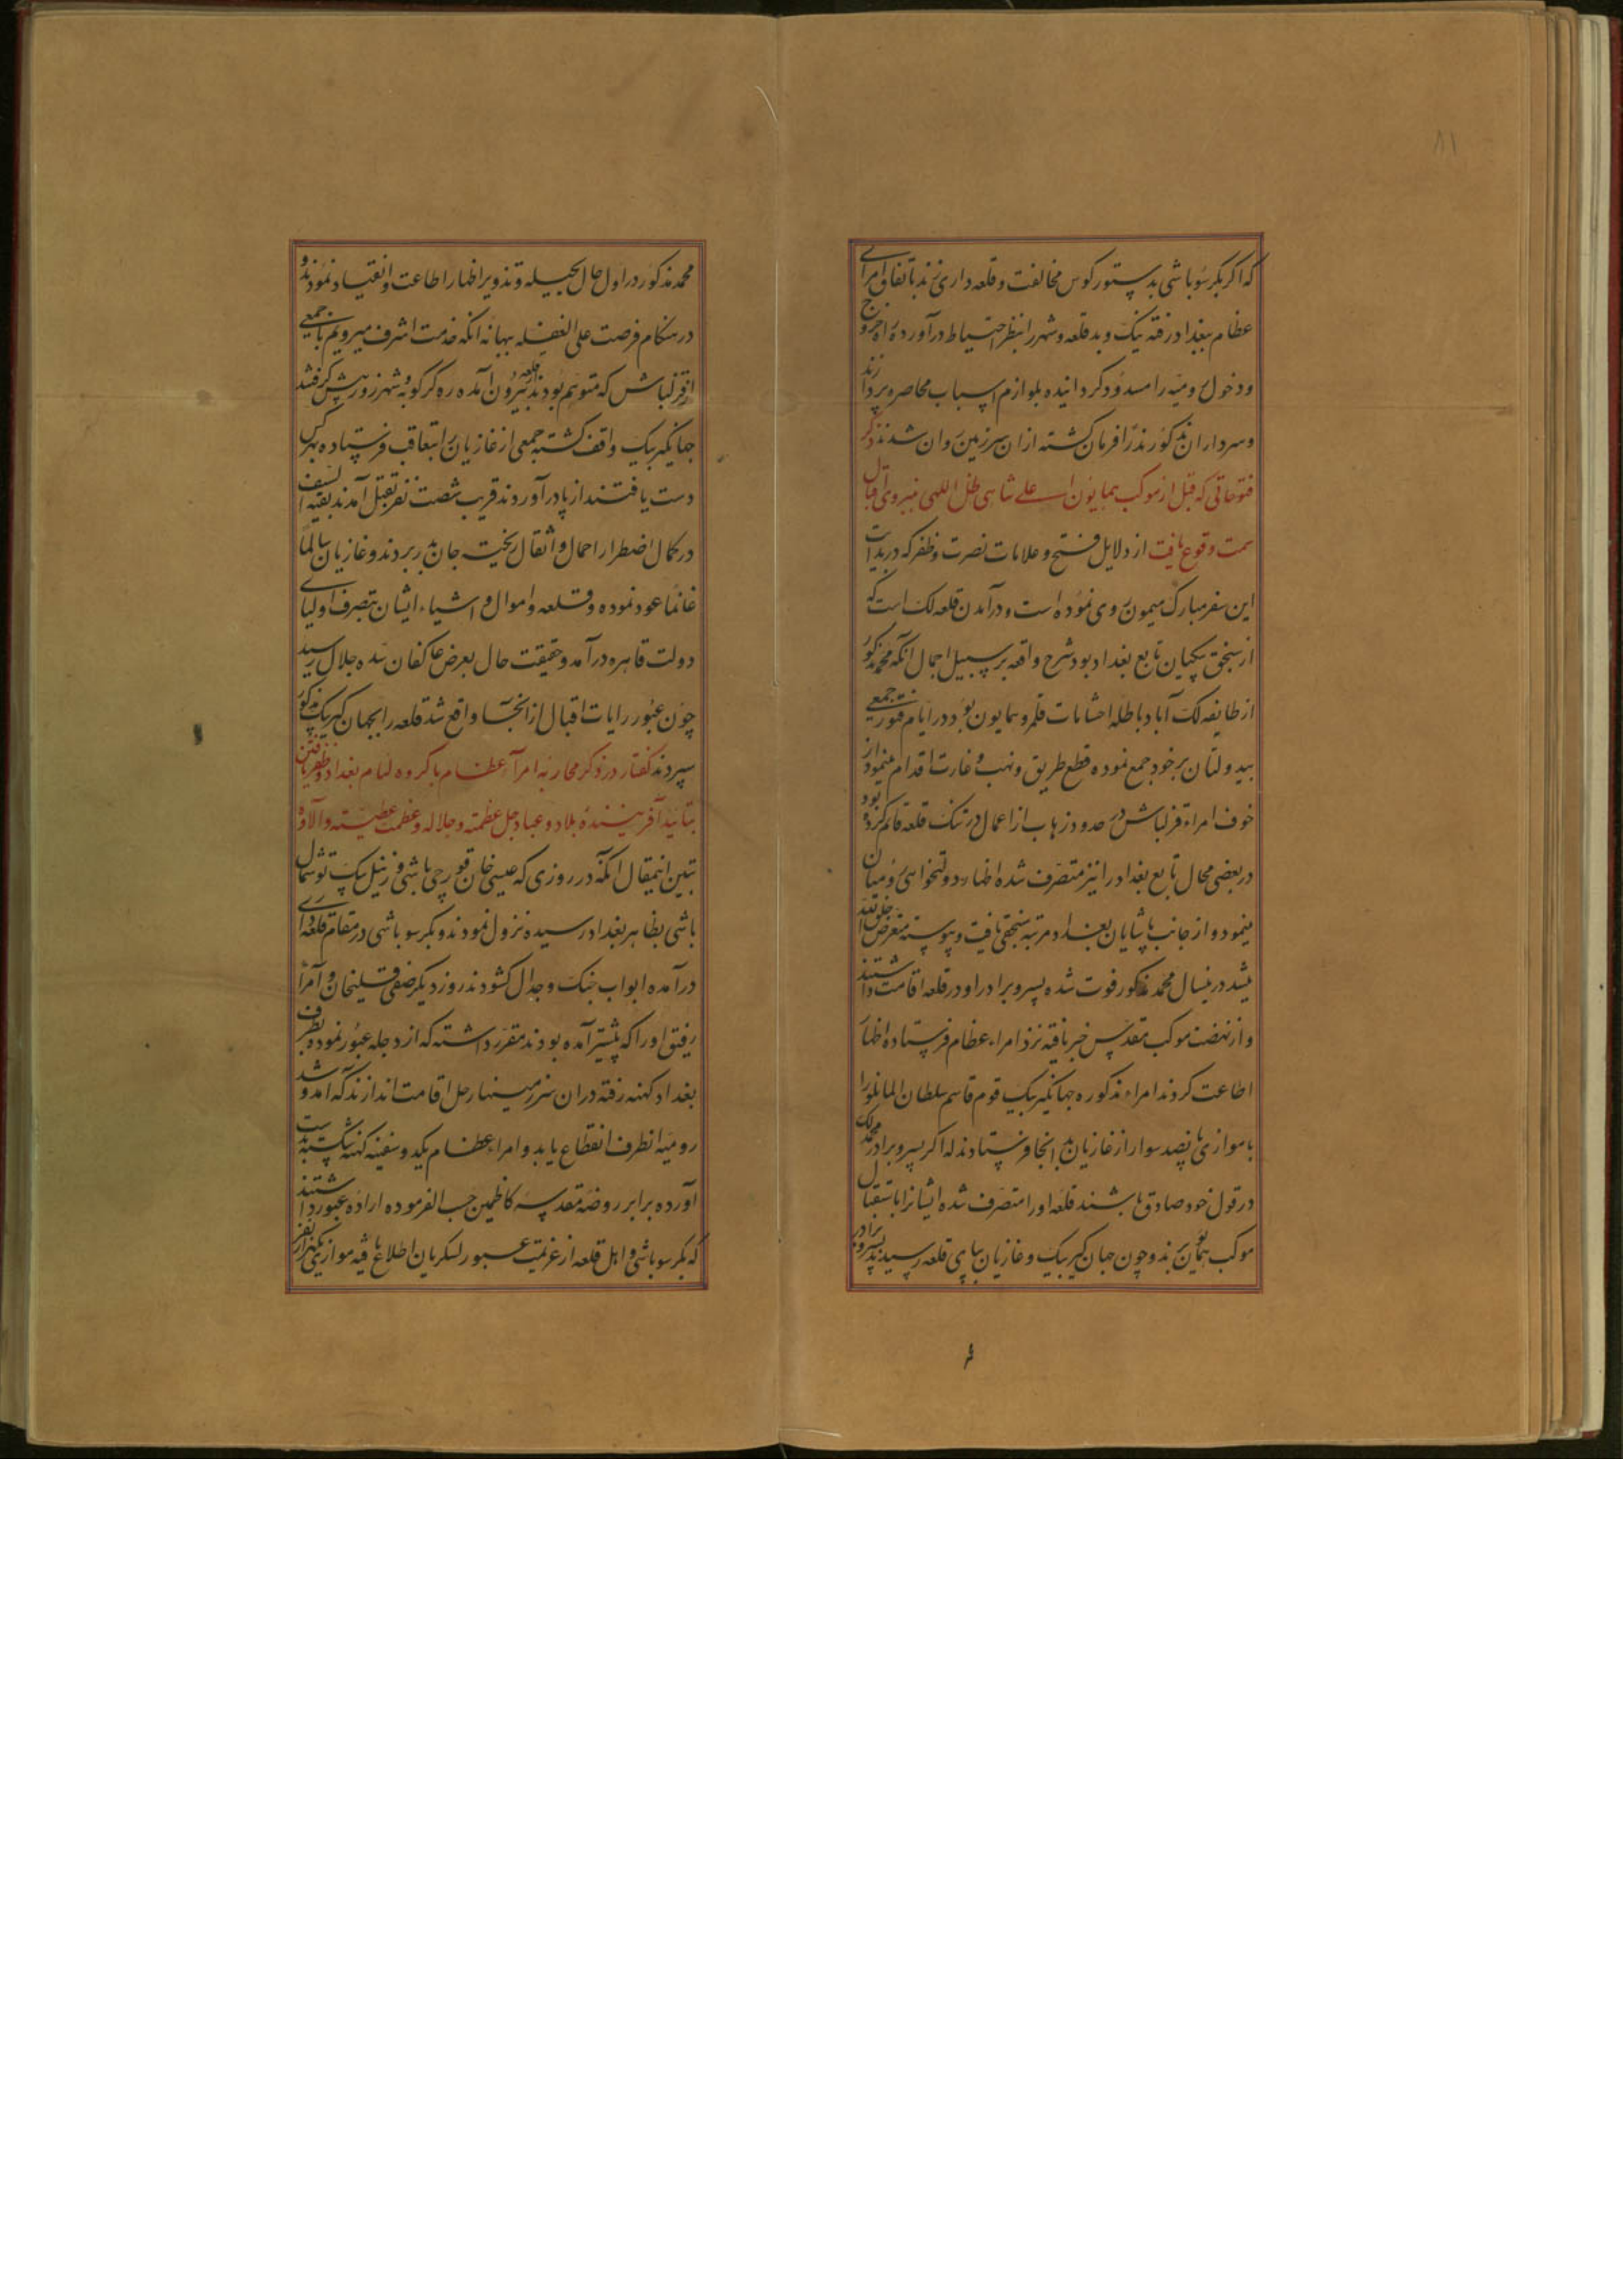 ۸۱
که اگر بکر سوباشی بدستور کوس مخالفت و قلعه داری زند باتفاق امرای
عظام ببغداد رفته نیک و بد قلعه و شهر را بنظر احتیاط درآورده راه خروج
و دخول رومیه را مسدود گردانیده بلوازم اسباب محاصره پردازند
و سرداران مذکور نذرا فرمان گشته از ان سرزمین روان شدند ذکر
فتوحاتی که قبل از موکب همایون اعلی شاهی ظل اللهی بنیروی اقبال
سمت وقوع یافت از دلایل فتح و علامات نصرت و ظفر که در بدایت
این سفر مبارک میمون روی نموده است و درآمدن قلعه لک است که
از سنجق تابع بغداد بود شرح واقعه بر سبیل اجمال آنکه محمد مذکور
از طایفه لک آباد باطله احشامات قلمرو همایون بود در ایام فتور جمعی
بیدولتان بر خود جمع نموده قطع طریق و نهب و غارت اقدام مینمود از
خوف امراء قزلباش در حدود زهاب از اعمال درتنک قلعه قائم کرده بود
در بعضی محال تابع بغداد را نیز متصرف شده اظهار دولتخواهی رومیان
مینمود و از جانب پاشایان بغداد مرتبه سنجقی یافت و پیوسته متعرض
میشد درینسال محمد مذکور فوت شده پسر و برادر او در قلعه اقامت داشتند
و از نهضت موکب مقدس خبر یافته نزد امراء عظام فرستاده اظهار
اطاعت کردند امراء مذکوره جهانگیر بیک قوم قاسم سلطان المانلو را
با موازی پانصد سوار از غازیان بدانجا فرستادند که اگر پسر و برادر محمد لک
در قول خود صادق باشند قلعه او را متصرف شده ایشانرا باستقبال
موکب همایون برند و چون جهان گیر بیک و غازیان بپای قلعه رسیدند پسر و برادر
محمد مذکور در اول حال بحیله و تزویر اظهار اطاعت و انقیاد نمودند و
در هنگام فرصت علی الغفله ببهانه انکه خدمت اشرف میرویم با جمعی
از قزلباش که متوهم بودند از قلعه بیرون آمده ره کرکوک و شهرزور پیش گرفتند
جهانگیر بیک واقف گشته جمعی از غازیان را بتعاقب فرستاده بهر کس
دست یافتند از پا درآوردند قریب شصت نفر بقتل آمدند بقیه السیف
در کمال اضطرار احمال و اثقال ریخته جان بدر بردند و غازیان سالماً
غانماً عود نموده و قلعه و اموال و اشیاء ایشان بتصرف اولیای
دولت قاهره درآمد و حقیقت حال بعرض عاکفان سده جلال رسید
چون عبور رایات اقبال از انجا واقع شد قلعه را بجهان گیر بیک مذکور
سپردند گفتار در ذکر محاربه امرآء عظام با گروه لئام بغداد و ظفر یافتن
بتائید آفرینندهٔ بلاد و عباد جل عظمته و جلاله و عظمت عطیته و آلاؤه
تبیین اینمقال انکه در روزی که عیسی خان قورچی باشی و زینل بیک توشمال
باشی بظاهر بغداد رسیده نزول نمودند و بکر سوباشی در مقام قلعه داری
درآمده ابواب جنک و جدال گشودند روز دیگر صفی قلیخان و امرآء
رفیق او را که پیشتر آمده بودند مقرر داشته که از دجله عبور نموده بطرف
بغداد کهنه رفته در ان سرزمینها رحل اقامت اندازند که آمد و شد
رومیه انطرف انقطاع یابد و امراء عظام یکدو سفینه کهنه شکسته بدست
آورده برابر روضه مقدسه کاظمین حسب الفرموده اراده عبور داشتند
که بکر سوباشی و اهل قلعه از عزیمت عبور لشکریان اطلاع یافته موازی یکهزار نفر